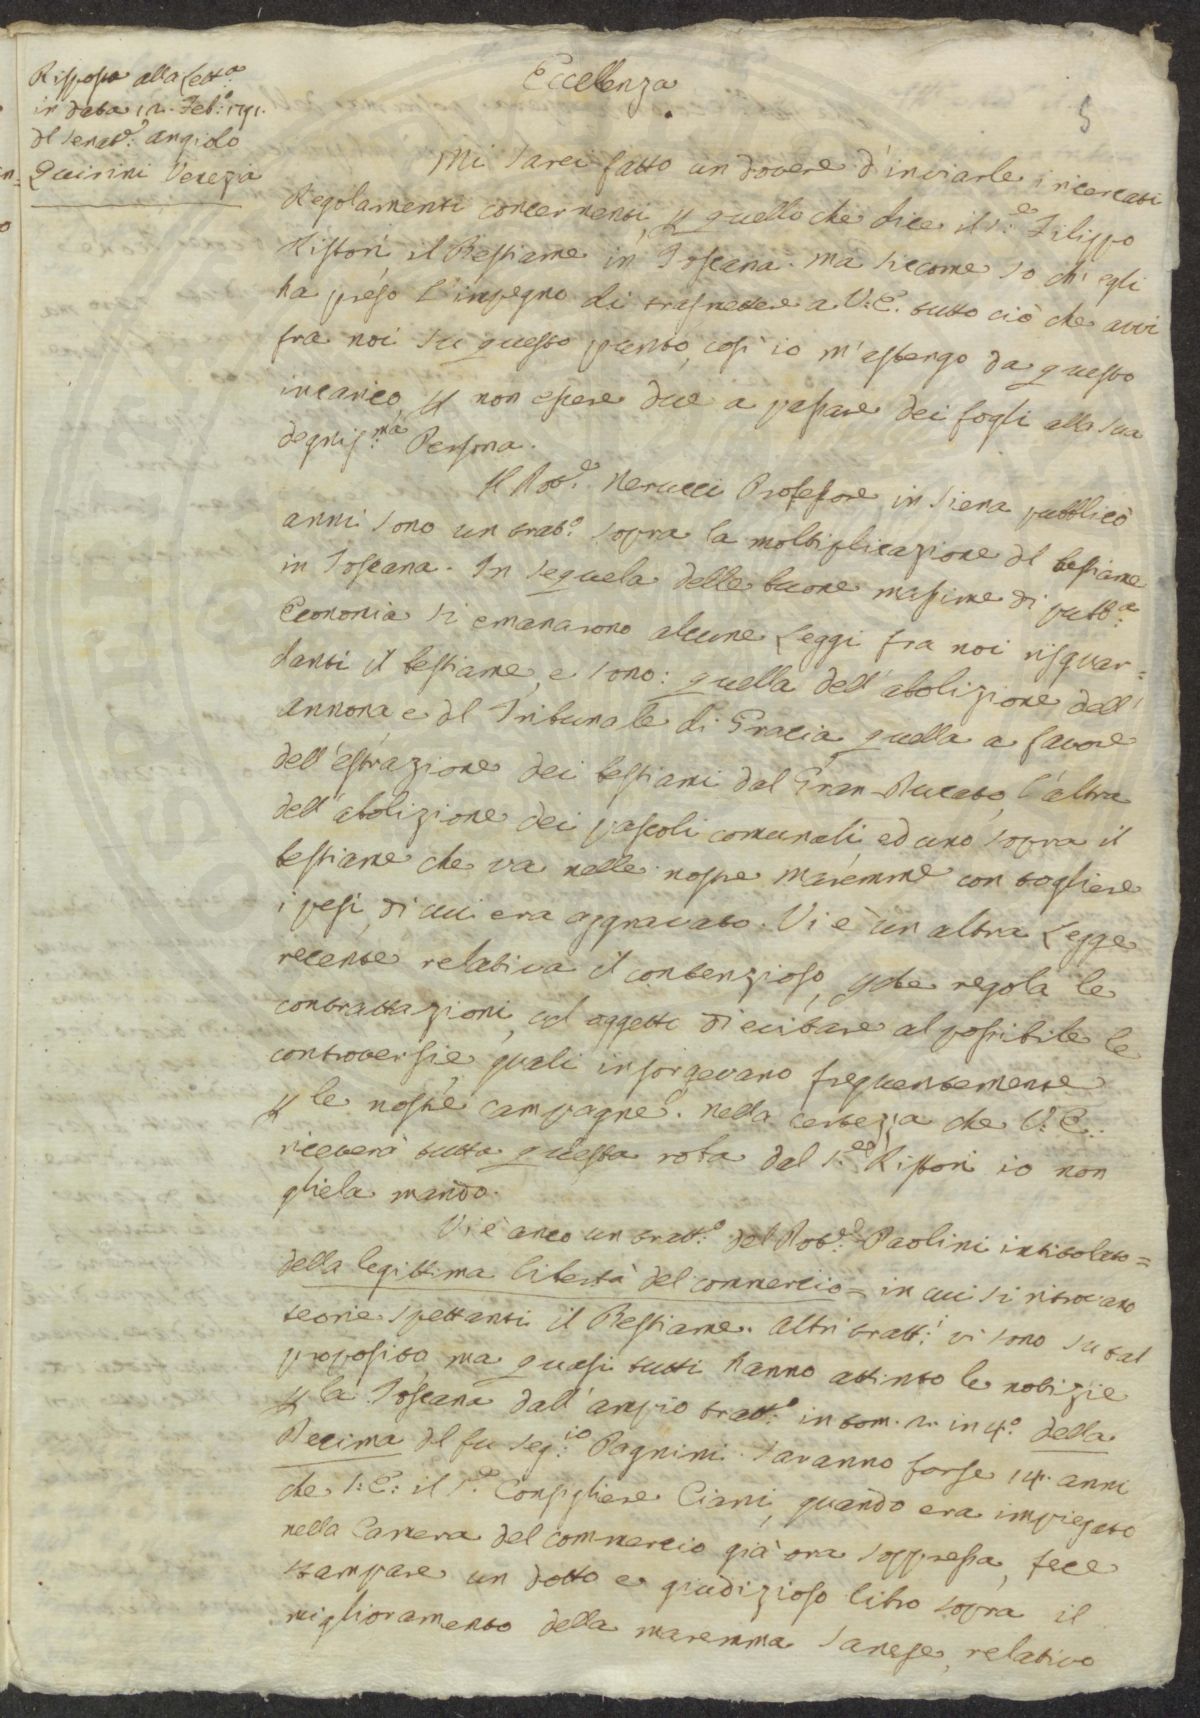 Eccellenza
5
Risposta alla Lett.a
in data 12. Feb.o 1791.
del Senat.e Angiolo
Quirini Venezia
Mi sarei fatto un dovere d'inviarle i ricercati
Regolamenti concernenti, p quello che dice il S.e Filippo
Ristori il Bestiame in Toscana. Ma siccome so ch'egli
ha preso l'impegno di trasmettere a V.E. tutto ciò che avvi
fra noi su questo punto, così io m'astengo da questo
incarico, p non essere due a passare dei fogli alla sua
degnis.ma Persona.
Il Dot.e Nerucci Professore in Siena pubblicò
anni sono un trat.o sopra la moltiplicazione del bestiame
in Toscana. In sequela delle buone massime di pubb.a
Economia si emanarono alcune Leggi fra noi risguar=
danti il bestiame, e sono: quella dell'abolizione dell'
Annona e del Tribunale di Grascia, quella a favore
dell'estrazione dei bestiami dal Gran-Ducato, l'altra
dell'abolizione dei pascoli comunali, ed uno sopra il
bestiame che va nelle nostre maremme con togliere
i pesi, di cui era aggravato. Vi è un altra Legge
recente relativa il contenzioso, che regola le
contrattazioni, col oggetto di evitare al possibile le
controversie, quali insorgevano frequentemente
p le nostre campagne. Nella certezza che V.E.
riceverà tutta questa roba dal S.e Ristori io non
gliela mando.
Vi è anco un tratt.o del Dot.e Paolini intitolato=
della legittima libertà del commercio= in cui si ritrovano
teorie spettanti il Bestiame. Altri tratt.i vi sono su tal
proposito, ma quasi tutti hanno attinto le notizie
p la Toscana dall'ampio tratt.o in tom. 2. in 4.o della
Decima del fu Seg.io Pagnini. Saranno forse 14. anni
che S.E. il S.e Consigliere Ciani, quando era impiegato
nella Camera del commercio già ora soppressa, fece
stampare un dotto e giudizioso libro sopra il
miglioramento della maremma Sanese, relativo